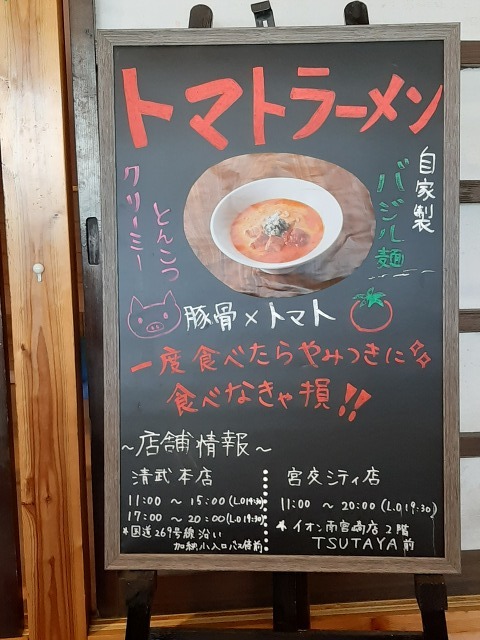 トマトラーメン
自家製
バジル麺
クリーミー
とんこつ
豚骨×トマト
一度食べたらやみつきに
食べなきゃ損!!
~店舗情報~
清武本店
11:00 ~ 15:00(L.O
17:00 ~ 20:00(L.O19:30)
*国道269号線沿い
加納小入口バス停前
宮交シティ店
11:00 ~ 20:00 (L.O19:30)
★イオン南宮崎店2階
TSUTAYA前